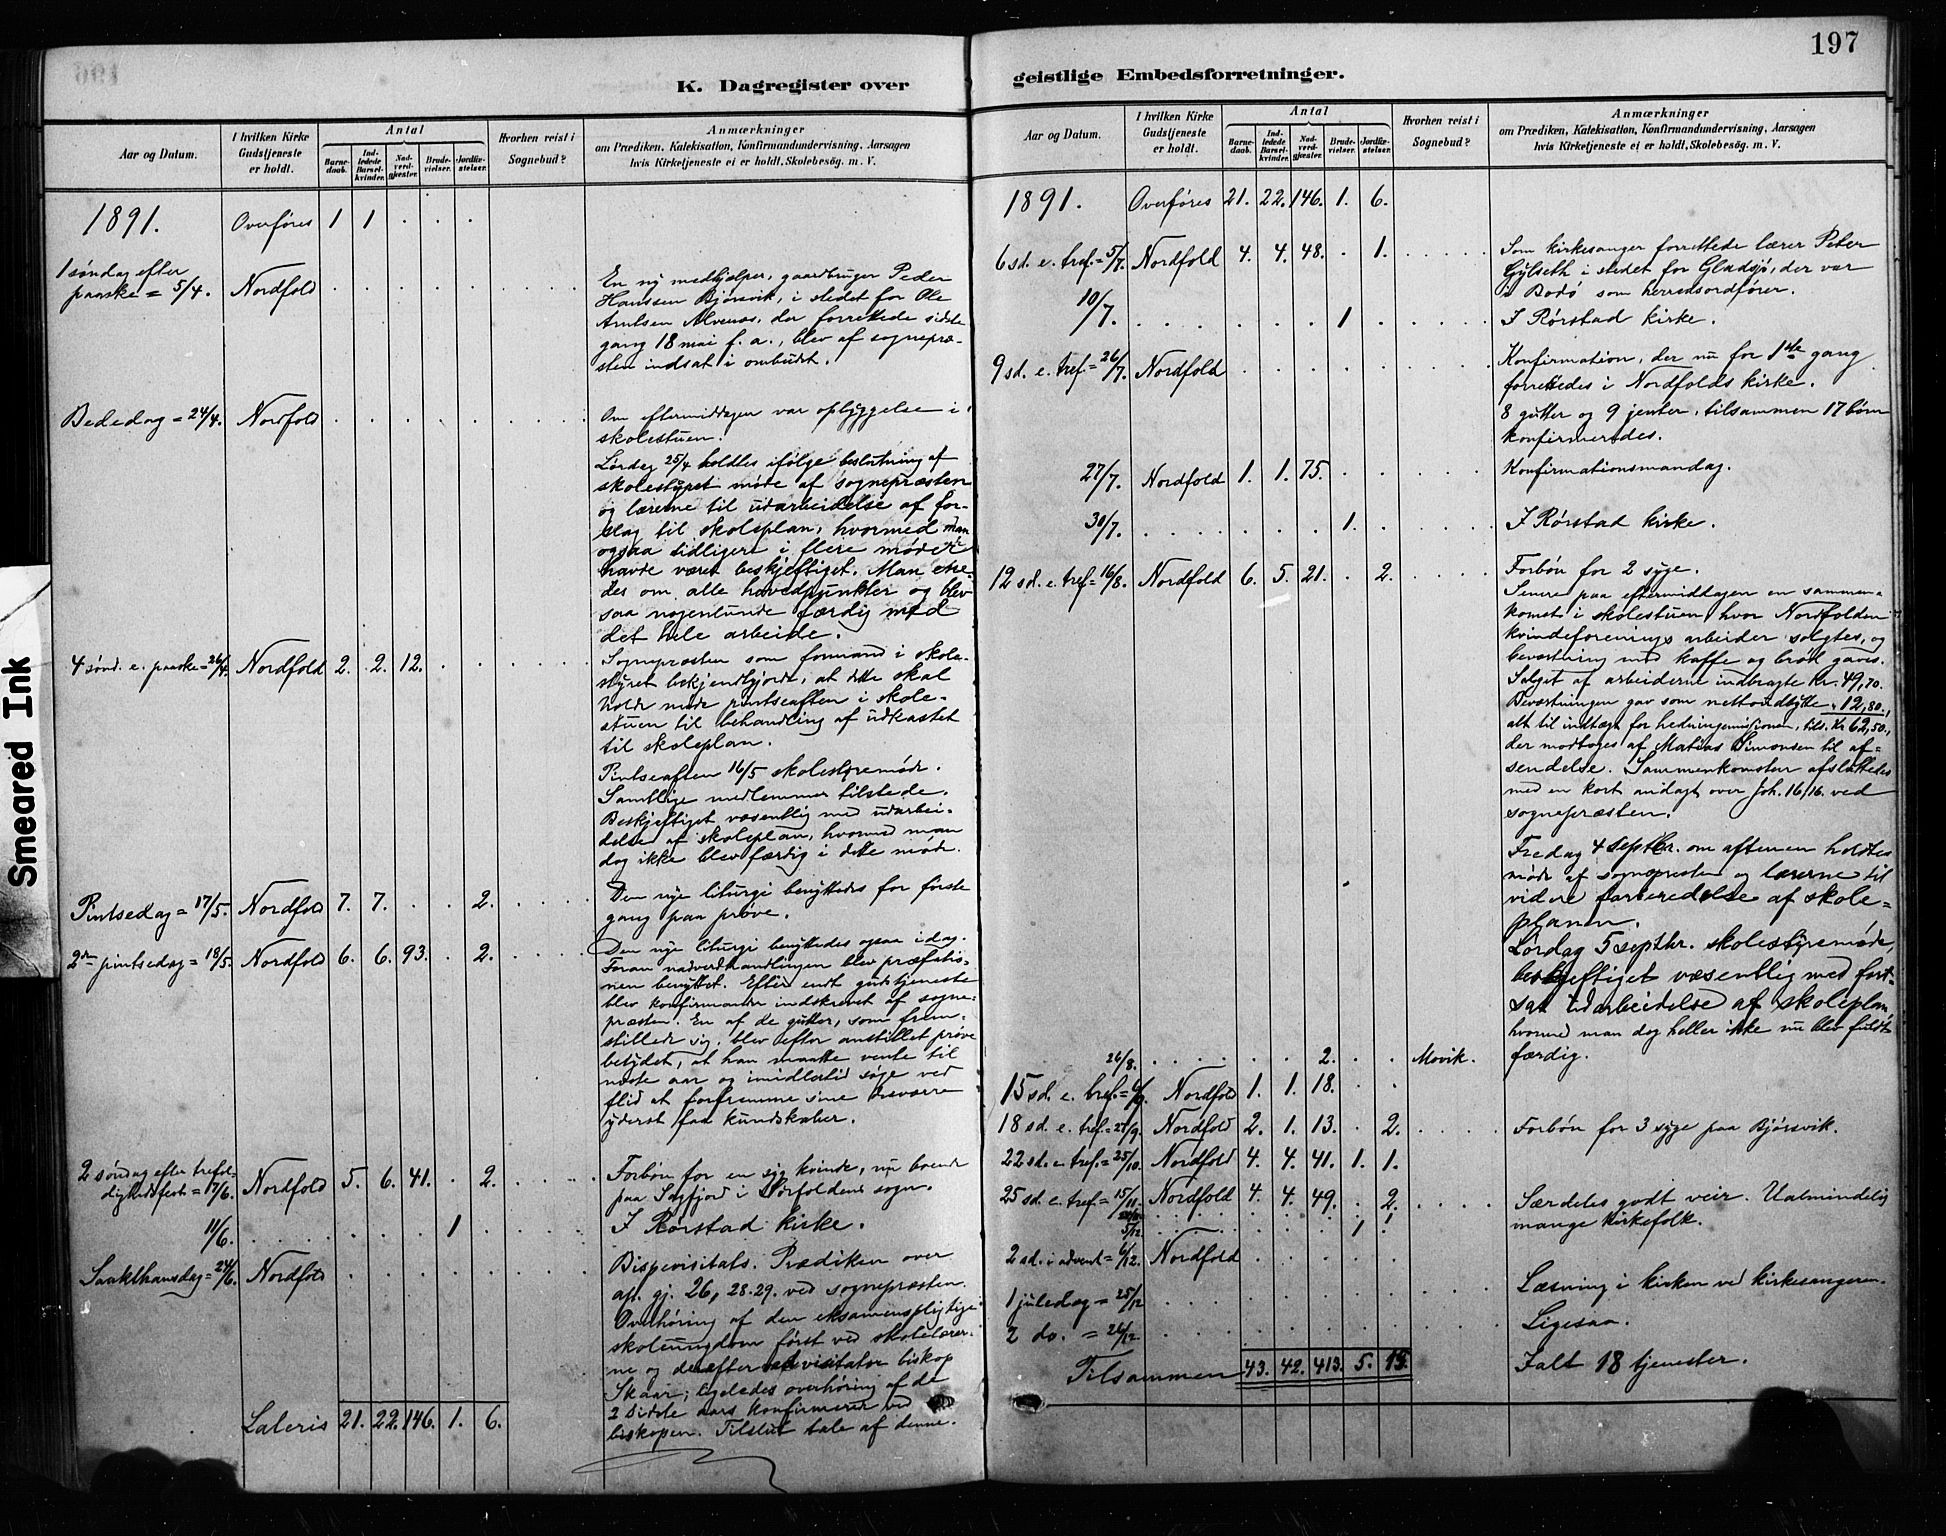 Smeared Ink
K. Dagregister over
Aar og Datum.
I hvilken Kirke Gudstjeneste er holdt.
Antal
Barne-daab.
Ind-ledede Barsel-kvinder.
Nad-verd-gjæster.
Brude-vielser.
Jordfæ-stelser.
Hvorhen reist i Sognebud?
Anmærkninger
om Prædiken, Katekisation, Konfirmandundervisning, Aarsagen
hvis Kirketjeneste ei er holdt, Skolebesøg. m. V.
1891. Overføres 1 1 . . .
1 søndag efter
paaske = 5/4. Nordfold . . . . .
En ny medhjælper, gaardbruger Peder
Hanssen Bjørsvik, i stedet for Ole
Arntsen Alvenes, der forrettede sidste
gang 18 mai f. a., blev af sognepræ-
sten indsat i ombudet.
Bededag = 24/4. Nordfold . . . . .
Om eftermiddagen var opbyggelse i
skolestuen.
Lørdag 25/4 holdtes ifølge beslutning af
skolestyret møde af sognepræsten
og lærerne til udarbeidelse af for-
slag til skoleplan, hvormed man
ogsaa tidligere i flere møder
havde været beskjeftiget. Man ene-
des om alle hovedpunkter og blev
saa nogenlunde færdig med
det hele arbeide.
4 sønd. e. paaske = 26/4. Nordfold 2. 2. 12. . .
Sognepræsten som formand i skole-
styret bekjendtgjorde, at dette skal
holde møde pintseaften i skole-
stuen til behandling af udkastet
til skoleplan.
Pintseaften 16/5 skolestyremøde.
Samtlige medlemmer tilstede.
Beskjeftiget væsentlig med udarbei-
delse af skoleplan, hvormed man
dog ikke blev færdig i dette møde.
Pintsedag = 17/5. Nordfold 7. 7. . . 2.
Den nye liturgi benyttedes for første
gang paa prøve.
2den pintsedag = 18/5. Nordfold 6. 6. 93. . 2.
Den nye liturgi benyttedes ogsaa idag.
Foran nadverdhandlingen blev præfatio-
nen benyttet. Efter endt gudstjeneste
blev konfirmander indskrevet af sogne-
præsten. En af de gutter, som frem-
stillede sig, blev efter anstillet prøve
betydet, at han maatte vente til
næste aar og imidlertid søge ved
flid at forfremme sine desværre
yderst faa kundskaber.
2 søndag efter trefol-
dighedsfest = Nordfold 5. 6. 41. . 2.
Forbøn for en syg kvinde, nu boende
paa Sagfjord i Sørfoldens sogn.
11/6. . . . . 1 .
I Rørstad kirke.
Sankthansdag = 24/6. Nordfold . . . . .
Bispevisitats. Prædiken over
ap. gj. 26, 28.29. ved sognepræsten.
Overhøring af den eksamenspligtige
skoleungdom først ved skolelærer-
ne og derefter ved visitator biskop
Skaar; ligeledes overhøring af de
2 sidste aars konfirmerede ved
biskopen. Tilslut tale af denne.
Lateris 21. 22. 146. 1. 6.
197
geistlige Embedsforretninger.
Aar og Datum.
I hvilken Kirke Gudstjeneste er holdt.
Antal
Barne-daab.
Ind-ledede Barsel-kvinder.
Nad-verd-gjæster.
Brude-vielser.
Jordfæ-stelser.
Hvorhen reist i Sognebud?
Anmærkninger
om Prædiken, Katekisation, Konfirmandundervisning, Aarsagen
hvis Kirketjeneste ei er holdt, Skolebesøg. m. V.
1891. Overføres 21. 22. 146. 1. 6.
6 sd. e. tref. = 5/7. Nordfold 4. 4. 48. . 1.
Som kirkesanger forrettede lærer Peter
Gylseth i stedet for Gladsjø, der var
i Bodø som herredsordfører.
10/7. . . . . 1 .
I Rørstad kirke.
9 sd. e. tref. = 26/7. Nordfold . . . . .
Konfirmation, der nu for 1ste gang
forrettedes i Nordfolds kirke.
8 gutter og 9 jenter, tilsammen 17 børn
konfirmeredes.
27/7. Nordfold 1. 1. 75. . .
Konfirmationsmandag.
30/7. . . . . 1. .
I Rørstad kirke.
12 sd. e. tref. = 16/8. Nordfold 6. 5. 21. . 2.
Forbøn for 2 syge.
Senere paa eftermiddagen en sammen-
komst i skolestuen hvor Nordfolden
kvindeforenings arbeider solgtes, og
bevertning med kaffe og brød gaves.
Salget af arbeiderne indbragte Kr. 49,70.
Bevertningen gav som nettoudbytte " 12,80.,
alt til indtægt for hedningemissionen, tils. Kr 62,50.,
der modtoges af Matias Simonsen til af-
sendelse. Sammenkomsten afsluttedes
med en kort andagt over Joh. 16,16. ved
sognepræsten.
Fredag 4 septbr. om aftenen holdtes
møde af sognepresten og lærerne til
videre forberedelse af skole-
planen.
Lørdag 5 septbr. skolestyremøde,
beskjeftiget væsentlig med fort-
sat udarbeidelse af skoleplan,
hvormed man dog heller ikke nu blev fuldt
færdig.
26/8. . . 2. . . Movik.
15 sd. e. tref. = 6/9. Nordfold 1. 1. 18. . .
18 sd. e. tref. = 27/9. Nordfold 2. 1. 13. . 2.
Forbøn for 3 syge paa Bjørsvik.
22 sd. e. tref. = 25/10. Nordfold 4. 4. 41. 1. 1.
25 sd. e. tref. = 15/11 Nordfold 4. 4. 49. . 2.
Særdeles godt veir. Ualmindelig
mange kirkefolk.
5/12. . . . . 1 .
2 sd. i advent = 6/12. Nordfold . . . . .
Læsning i kirken ved kirkesangeren.
1 juledag = 25/12 . . . . .
Ligesaa.
2 do. = 26/12 . . . . .
Tilsammen 43. 42. 413. 5. 15.
Ialt 18 tjenester.